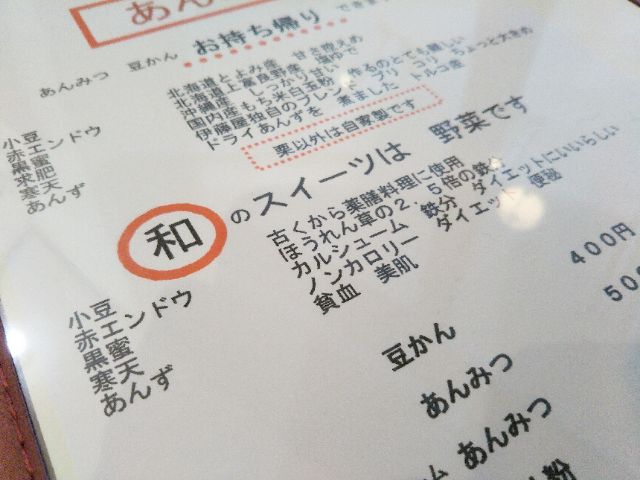 あん
お持ち帰り できま
あんみつ 豆かん
小豆 北海道とよみ産 甘さ控えめ
赤エンドウ 北海道上富良野産 塩ゆで
黒蜜 沖縄産 しっかり甘い
求肥 国内産もち米白玉粉 作るのとても難しい
寒天 伊藤屋独自のブレンド プリ コリ ちょっと大きめ
あんず ドライあんずを 煮ました トルコ産
栗以外は自家製です
和のスイーツは 野菜です
小豆 古くから薬膳料理に使用
赤エンドウ ほうれん草の2.5倍の鉄分
黒蜜 カルシューム 鉄分 ダイエットにいいらしい
寒天 ノンカロリー ダイエット 便秘
あんず 貧血 美肌
豆かん 400円
あんみつ 50
ム あんみつ
粉